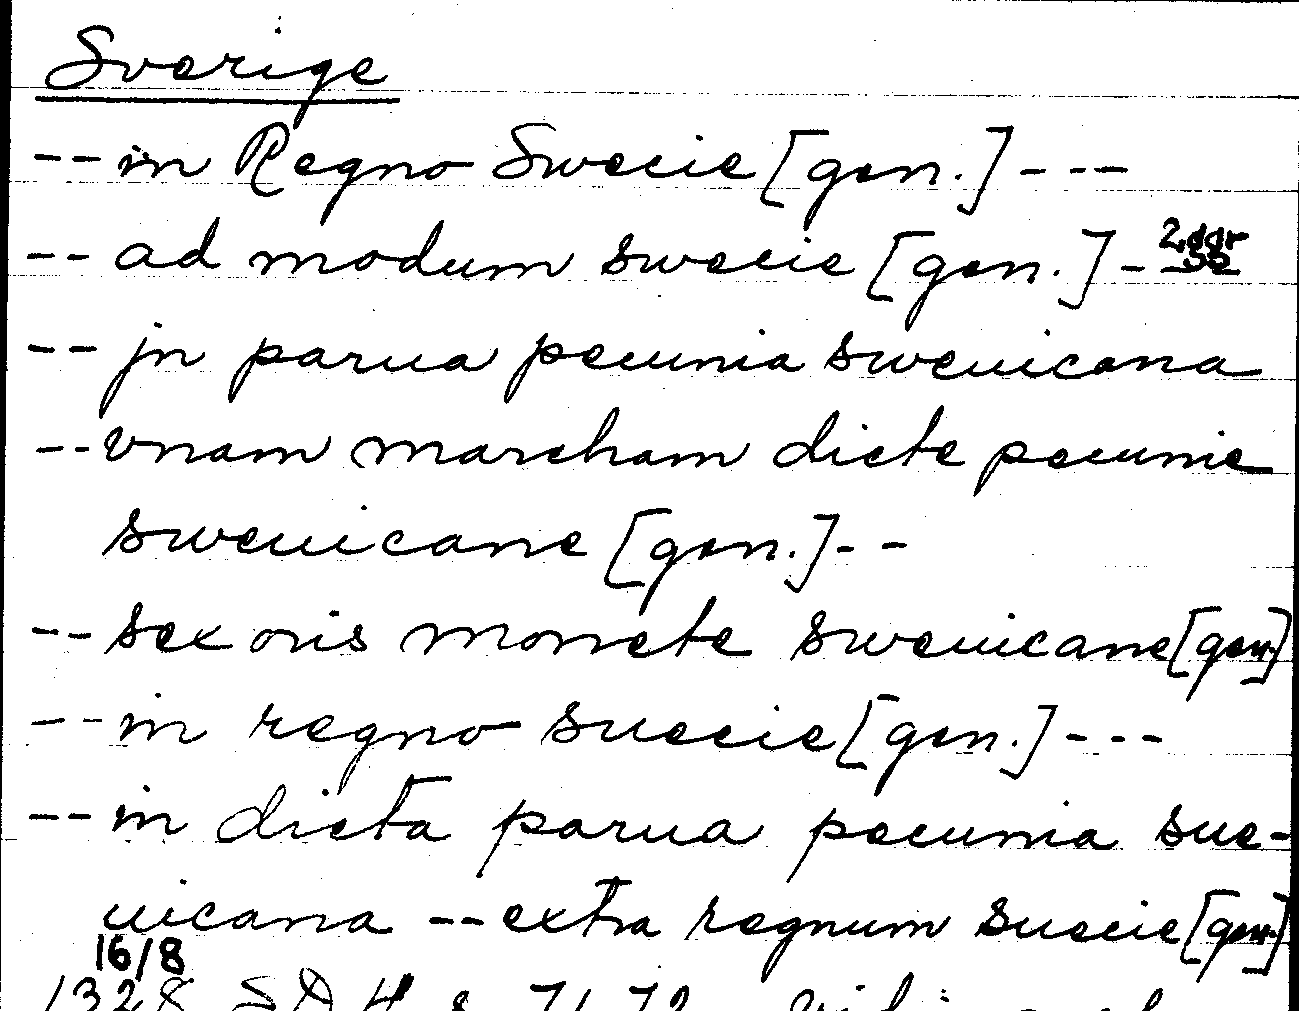 Sverige
-- in Regno Swecie [gen.] ---
-- ad modum swecie [gen.] - 2 ggr
-- jn parua pecunia sweuicana
-- vnam marcham dicte pecunie
sweuicane [gen.] --
-- sex oris monete sweuicane [gen.]
-- in regno suecie [gen.] ---
-- in dicta parua pecunia sue-
uicana -- extra regnum suecie [gen.]
16/8
1328 SD 4 s 71, 72